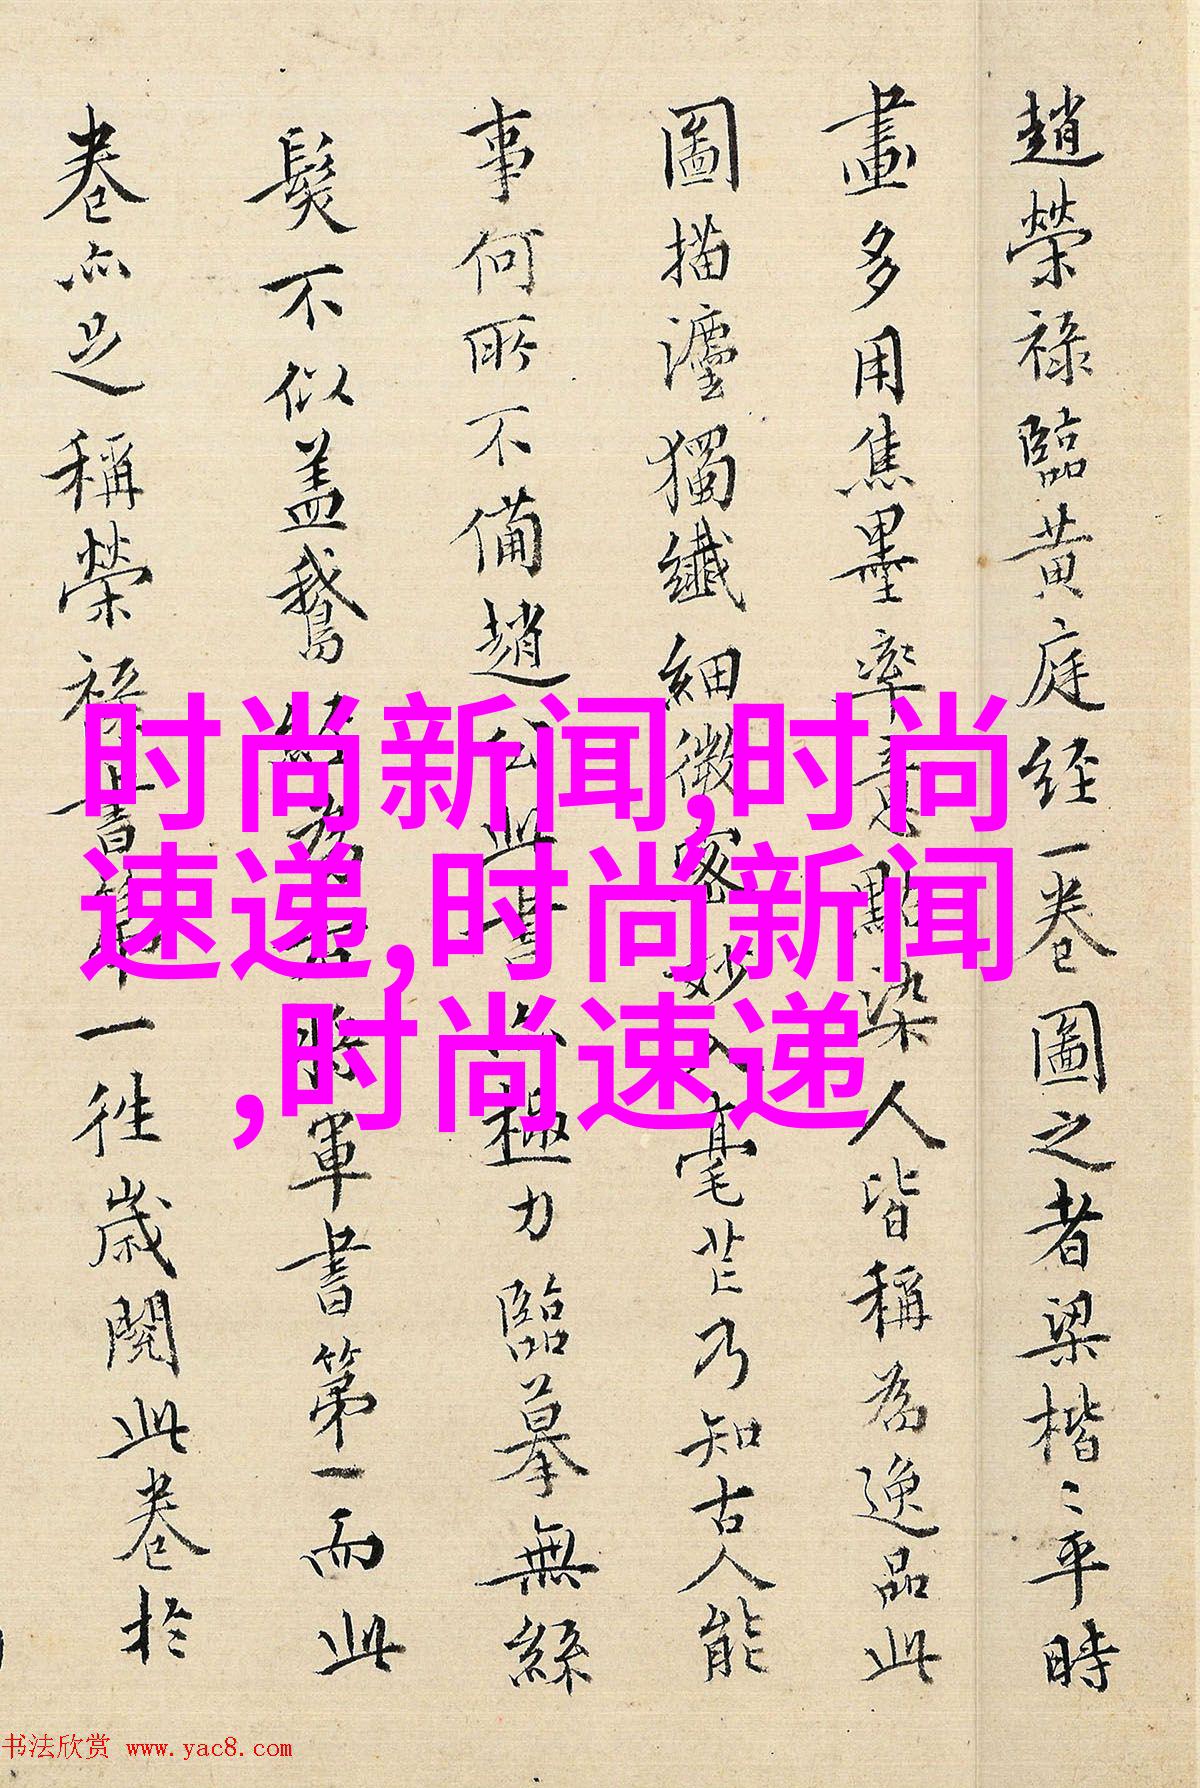 趙榮祿臨黃庭經一卷圖之者梁楷〻平時
畫多用焦墨率意點染人皆稱為逸品此
圖描瀍獨纖細微密妙入毫芒乃知古人能
事何所不備趙公此書亦極力臨摹無絲
髮不似蓋鵞經為右將軍書第一而此
卷亦足稱榮祿書第一往歲閱此卷於
时尚新闻,时尚
速递,时尚新闻
,时尚速递
书法欣赏 www.yac8.com